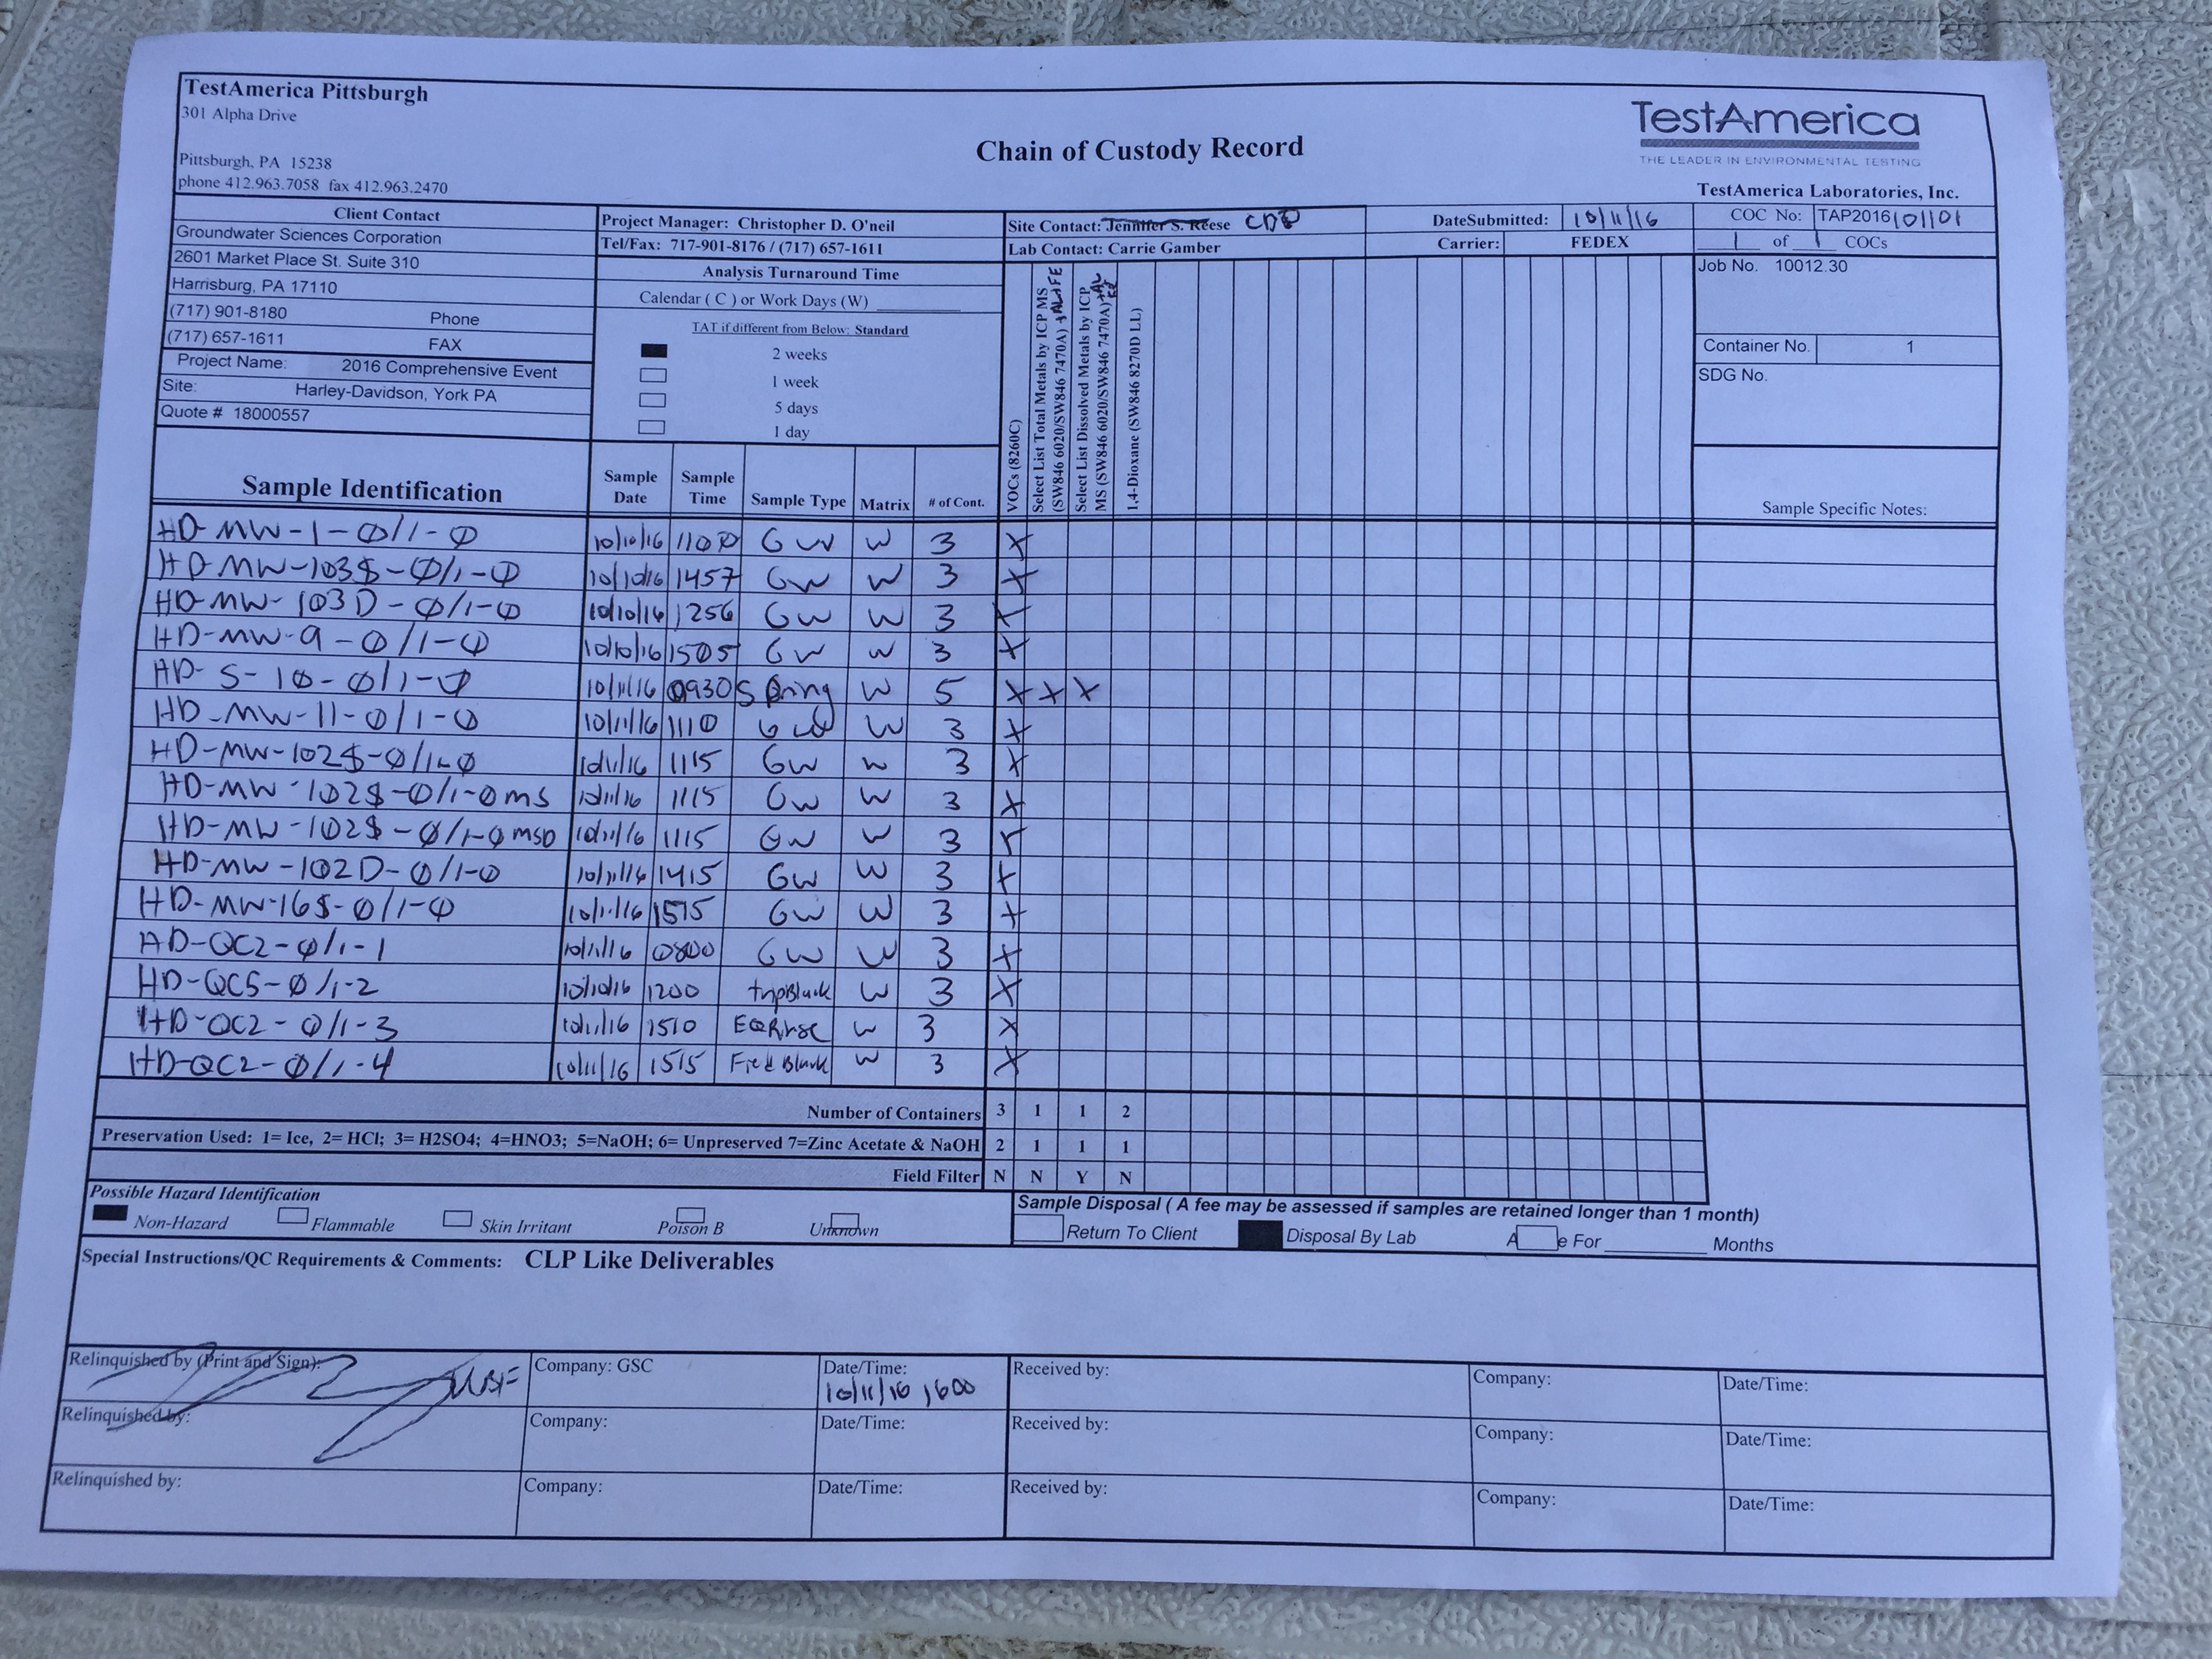 TestAmerica Pittsburgh
301 Alpha Drive
Pittsburgh, PA 15238
phone 412.963.7058 fax 412.963.2470
Chain of Custody Record
TestAmerica
THE LEADER IN ENVIRONMENTAL TESTING
TestAmerica Laboratories, Inc.
Client Contact
Groundwater Sciences Corporation
2601 Market Place St. Suite 310
Harrisburg, PA 17110
(717) 901-8180 Phone
(717) 657-1611 FAX
Project Name: 2016 Comprehensive Event
Site: Harley-Davidson, York PA
Quote # 18000557
Project Manager: Christopher D. O'neil
Tel/Fax: 717-901-8176 / (717) 657-1611
Analysis Turnaround Time
Calendar ( C ) or Work Days (W)
TAT if different from Below: Standard
2 weeks
1 week
5 days
1 day
Site Contact: Jennifer S. Reese
Lab Contact: Carrie Gamber
DateSubmitted: 10/11/16
Carrier: FEDEX
COC No: TAP2016101101
1 of 1 COCs
Job No. 10012.30
Container No. 1
SDG No.
Sample Identification
Sample Date
Sample Time
Sample Type
Matrix
# of Cont.
VOCs (8260C)
Select List Total Metals by ICP MS
(SW846 6020/SW846 7470A) +AL+FE
Select List Dissolved Metals by ICP
MS (SW846 6020/SW846 7470A)
1,4-Dioxane (SW846 8270D LL)
Sample Specific Notes:
HD-MW-1-0/1-0 10/10/16 1100 GW W 3 X
HD-MW-103S-0/1-0 10/10/16 1457 GW W 3 X
HD-MW-103D-0/1-0 10/10/16 1256 GW W 3 X
HD-MW-9-0/1-0 10/10/16 1505 GW W 3 X
HD-S-10-0/1-0 10/11/16 0930 Spring W 5 X X X
HD-MW-11-0/1-0 10/11/16 1110 GW W 3 X
HD-MW-102S-0/1-0 10/11/16 1115 GW W 3 X
HD-MW-102S-0/1-0 MS 10/11/16 1115 GW W 3 X
HD-MW-102S-0/1-0 MSD 10/11/16 1115 GW W 3 X
HD-MW-102D-0/1-0 10/11/16 1415 GW W 3 X
HD-MW-16S-0/1-0 10/11/16 1515 GW W 3 X
HD-QC2-0/1-1 10/11/16 0800 GW W 3 X
HD-QC5-0/1-2 10/10/16 1200 trip Blank W 3 X
HD-QC2-0/1-3 10/11/16 1510 EQ Rinse W 3 X
HD-QC2-0/1-4 10/11/16 1515 Field Blank W 3 X
Number of Containers 3 1 1 2
Preservation Used: 1= Ice, 2= HCl; 3= H2SO4; 4=HNO3; 5=NaOH; 6= Unpreserved 7=Zinc Acetate & NaOH 2 1 1 1
Field Filter N N Y N
Possible Hazard Identification
Non-Hazard Flammable Skin Irritant Poison B Unknown
Sample Disposal ( A fee may be assessed if samples are retained longer than 1 month)
Return To Client Disposal By Lab A e For Months
Special Instructions/QC Requirements & Comments: CLP Like Deliverables
Relinquished by (Print and Sign): Company: GSC Date/Time: 10/11/16 1600 Received by: Company: Date/Time:
Relinquished by: Company: Date/Time: Received by: Company: Date/Time:
Relinquished by: Company: Date/Time: Received by: Company: Date/Time: